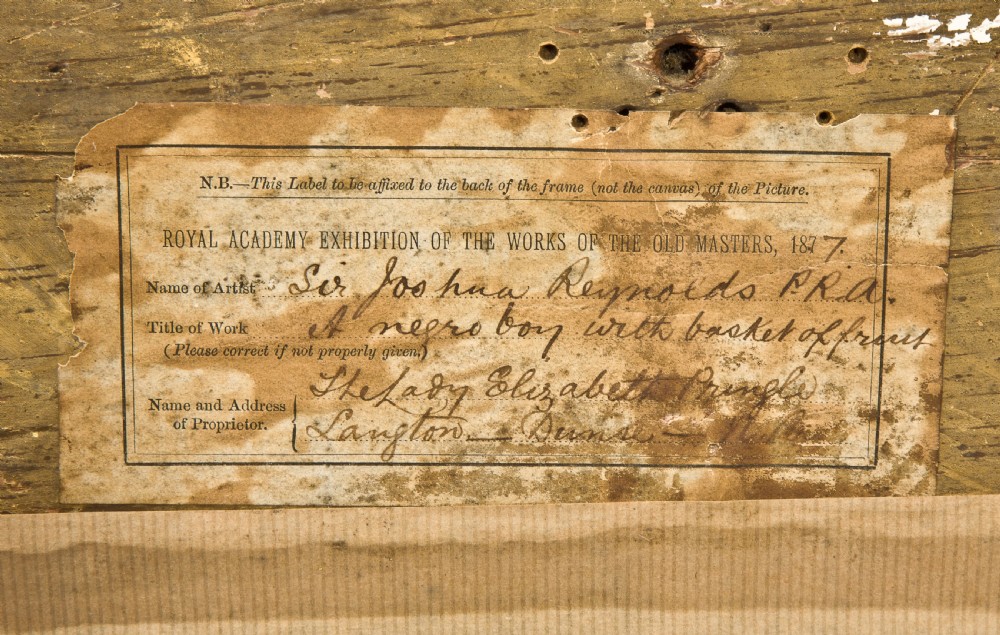 N.B.—This Label to be affixed to the back of the frame (not the canvas) of the Picture.
ROYAL ACADEMY EXHIBITION OF THE WORKS OF THE OLD MASTERS, 1877.
Name of Artist Sir Joshua Reynolds P.R.A.
Title of Work A negro boy with basket of fruit
(Please correct if not properly given.)
The Lady Elizabeth Pringle
Name and Address
of Proprietor. Langton — Dunse —